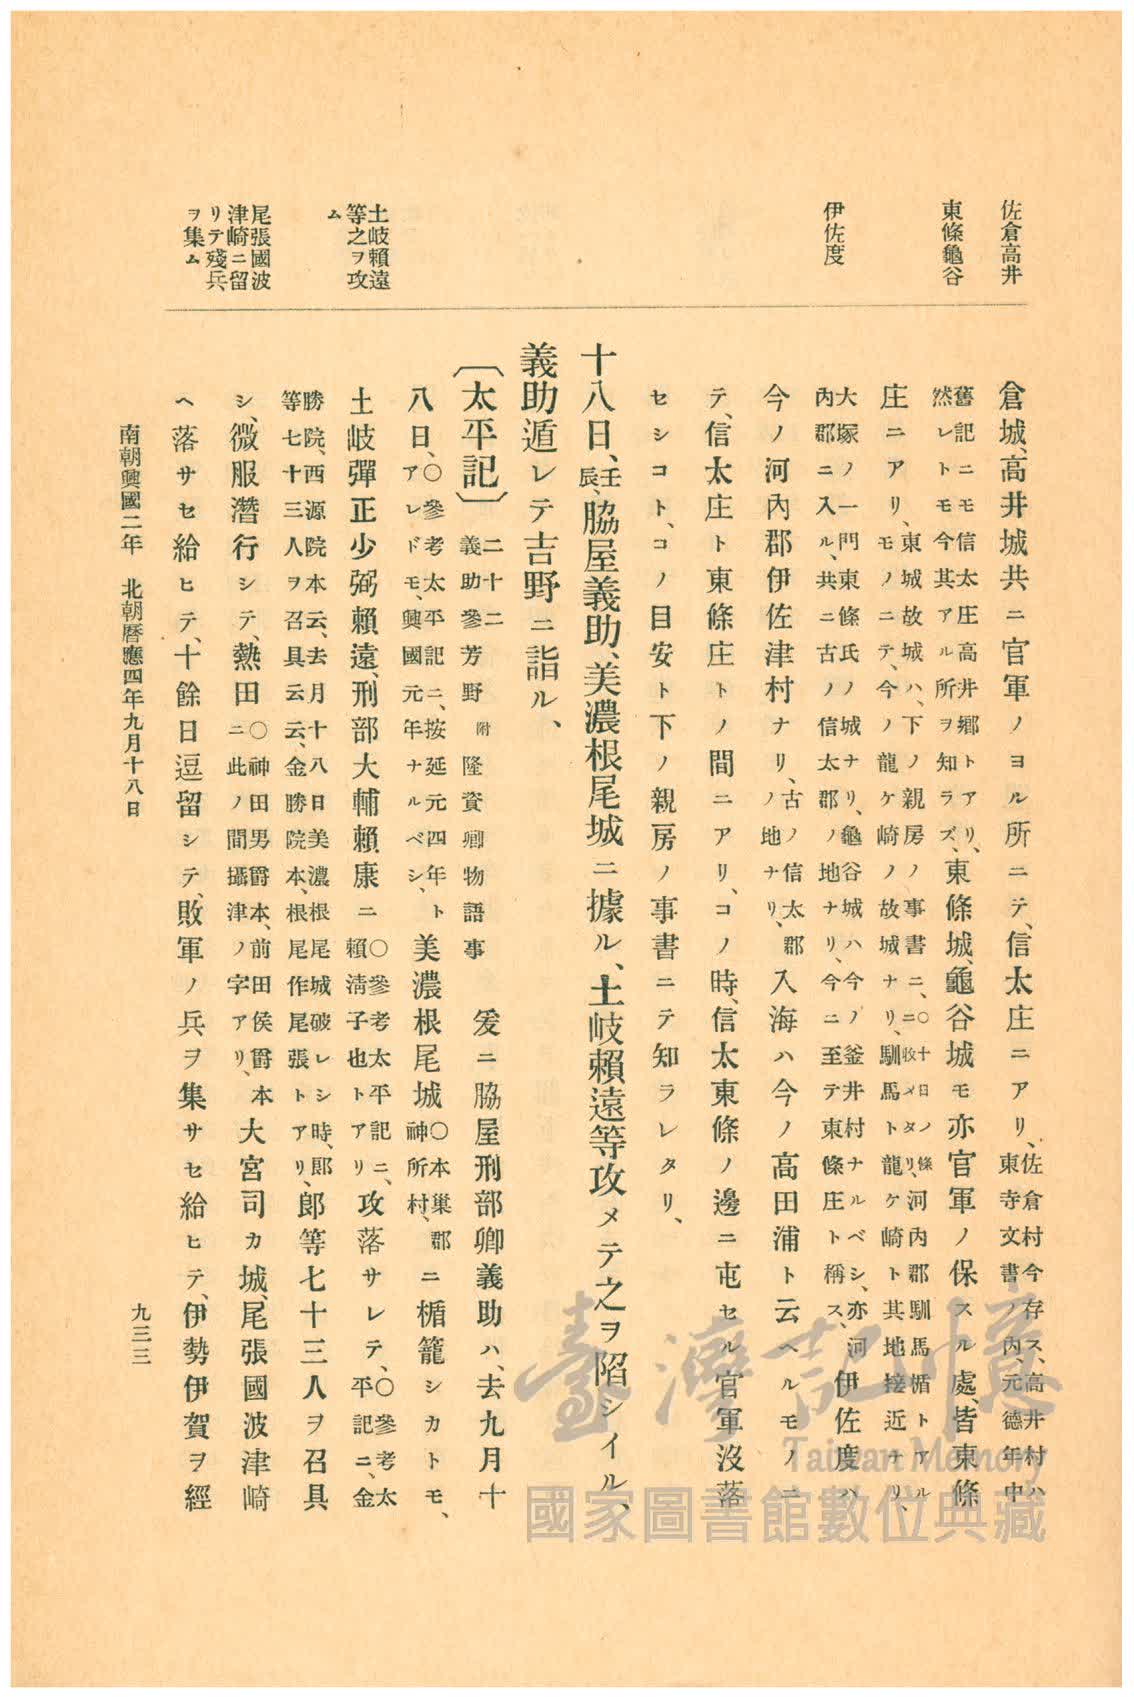 佐倉高井
東條龜谷
伊佐度
土岐賴遠
等之ヲ攻
ム
尾張國波
津崎ニ留
リテ殘兵
ヲ集ム
倉城、高井城共ニ官軍ノヨル所ニテ、信太庄ニアリ、佐倉村今存ス、高井村ハ東寺文書ノ内、元德年中
舊記ニモ信太庄高井鄕トアリ、然レトモ今其アル所ヲ知ラズ、東條城、龜谷城モ亦官軍ノ保スル處、皆東條
庄ニアリ、東城故城ハ、下ノ親房ノ事書ニ、〇十日ノ條ニ收メタリ、河内郡馴馬楯トアルモノニテ、今ノ龍ケ崎ノ故城ナリ、馴馬ト龍ケ崎ト其地接近ナリ、
大塚ノ一門東條氏ノ城ナリ、龜谷城ハ今ノ釜井村ナルベシ、亦河内郡ニ入ル、共ニ古ノ信太郡ノ地ナリ、今ニ至テ東條庄ト稱ス、伊佐度ハ
今ノ河内郡伊佐津村ナリ、古ノ信太郡ノ地ナリ、入海ハ今ノ高田浦ト云ヘルモノニ
テ、信太庄ト東條庄トノ間ニアリ、コノ時、信太東條ノ邊ニ屯セル官軍沒落
セシコト、コノ目安ト下ノ親房ノ事書ニテ知ラレタリ、
十八日、壬辰、脇屋義助、美濃根尾城ニ據ル、土岐賴遠等攻メテ之ヲ陷シイル、
義助遁レテ吉野ニ詣ル、
〔太平記〕二十二義助參芳野附隆資卿物語事 爰ニ脇屋刑部卿義助ハ、去九月十
八日、〇參考太平記ニ、按延元四年トアレドモ、興國元年ナルベシ、美濃根尾城〇本巢郡神所村、ニ楯籠シカトモ、
土岐彈正少弼賴遠、刑部大輔賴康ニ〇參考太平記ニ、賴淸子也トアリ、攻落サレテ、〇參考太平記ニ、金
勝院、西源院本云、去月十八日美濃根尾城破レシ時、郞等七十三人ヲ召具云云、金勝院本、根尾作尾張トアリ、郞等七十三人ヲ召具
シ、微服潛行シテ、熱田〇神田男爵本、前田侯爵本ニ此ノ間攝津ノ字アリ、大宮司カ城、尾張國波津崎
ヘ落サセ給ヒテ、十餘日逗留シテ、敗軍ノ兵ヲ集サセ給ヒテ、伊勢伊賀ヲ經
南朝興國二年 北朝曆應四年九月十八日
九三三
臺灣記憶
Taiwan Memory
國家圖書館數位典藏